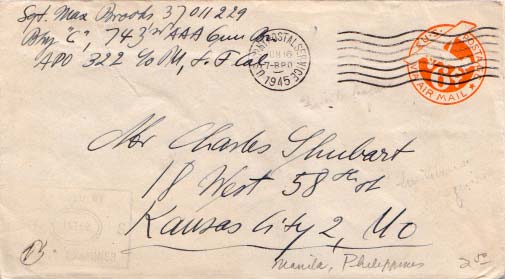 Sgt. Max Brooks 37011229
Btry "C", 743rd AAA Gun Bn
APO 322 c/o PM, S.F. Cal
U.S. ARMY POSTAL SERVICE
JUN 16
7-BPO
1945
U.S. POSTAGE
6¢
VIA AIR MAIL
Mr Charles Shubart
18 West 58th St
Kansas City 2, Mo
Manila, Philippines
2.50